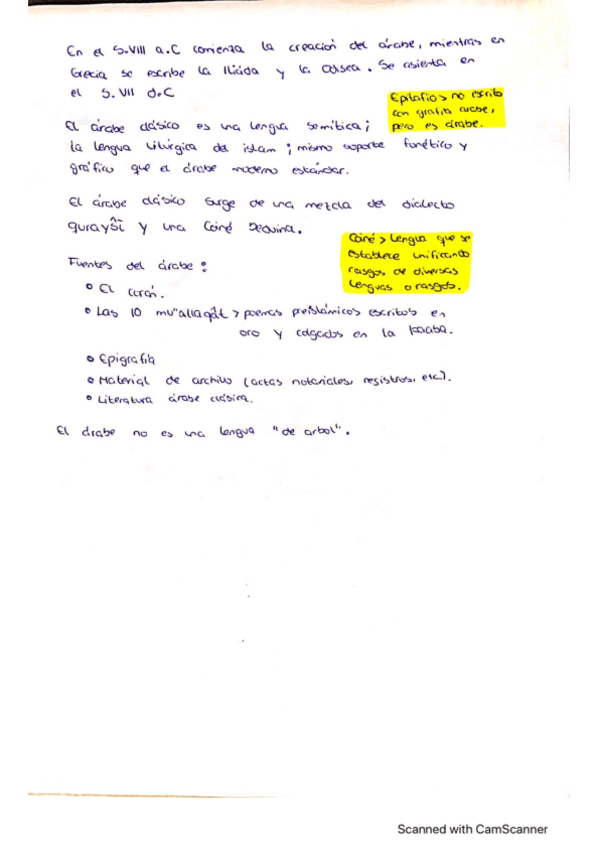 En el S.VIII a.C comienza la creación del árabe, mientras en
Grecia se escribe la Ilíada y la Odisea. Se asienta en
el S. VII d.C
Epitafios > no escrito
con grafía árabe,
pero es árabe.
El árabe clásico es una lengua semítica;
la lengua litúrgica del islam; mismo soporte fonético y
gráfico que el árabe moderno estándar.
El árabe clásico surge de una mezcla del dialecto
qurayšī y una Coiné beduina.
Coiné > Lengua que se
establece unificando
rasgos de diversas
lenguas o rasgos.
Fuentes del árabe:
• El corán.
• Las 10 mu"allaqāt > poemas preislámicos escritos en
oro y colgados en la kaaba.
• Epigrafía
• Material de archivo (actas notariales, registros, etc).
• Literatura árabe clásica.
El árabe no es una lengua "de arbol".
Scanned with CamScanner